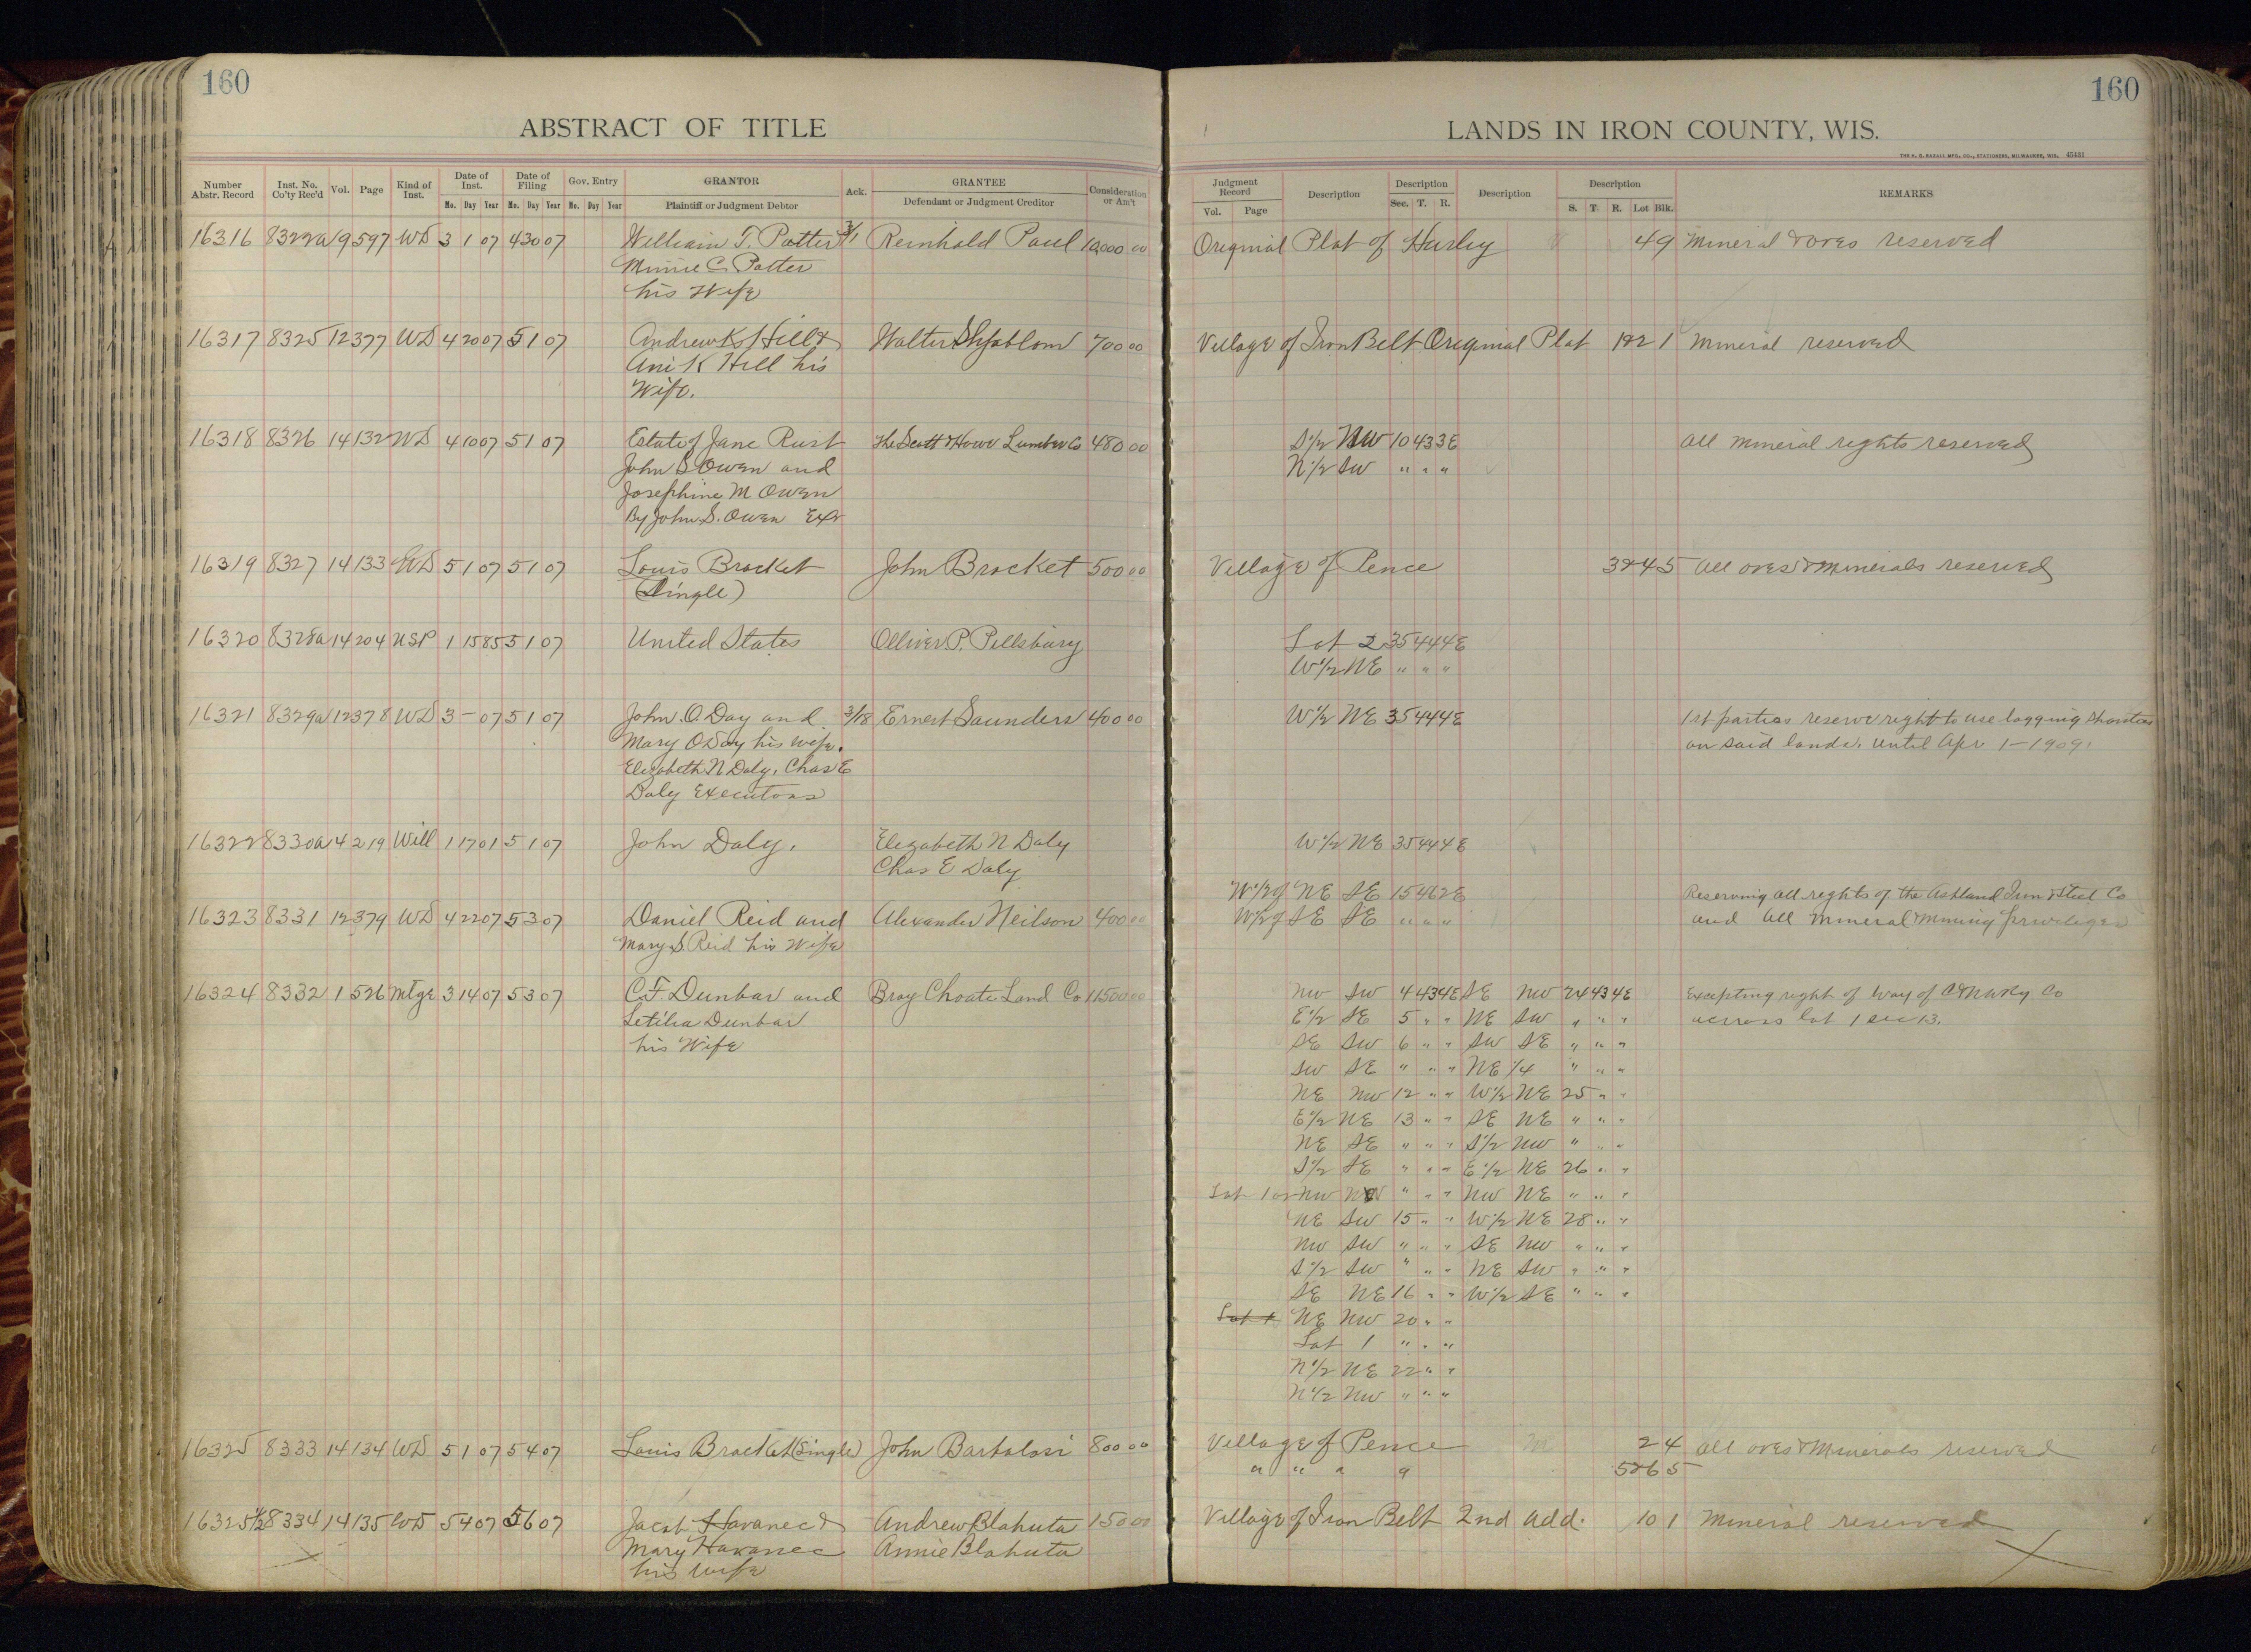 160
160
ABSTRACT OF TITLE
LANDS IN IRON COUNTY, WIS.
Number Abstr. Record | Inst. No. Co'ty Rec'd | Vol. | Page | Kind of Inst. | Date of Inst. Mo. Day Year | Date of Filing Mo. Day Year | Gov. Entry Mo. Day Year | GRANTOR Plaintiff or Judgment Debtor | Ack. | GRANTEE Defendant or Judgment Creditor | Consideration or Am't | Judgment Record Vol. Page | Description | Description Sec. T. R. | Description | Description S. T. R. Lot Blk. | REMARKS
16316 8322a 9 597 WD 3 1 07 4 30 07 William T. Potter 3/1 Reinhold Paul 10,000 00 Original Plat of Hurley 4 9 Mineral & ores reserved
Minnie C. Potter
his Wife
16317 8325 12 377 WD 4 20 07 5 1 07 Andrew K. Hill & Walter 700 00 Village of Iron Belt Original Plat 1 Mineral reserved
K Hill his
Wife.
16318 8326 14 132 WD 4 10 07 5 1 07 Estate of Jane Rust The Scott & Howe Lumber Co 480 00 S 1/2 NW 10 43 3E All Mineral rights reserved
John S Owen and N 1/2 SW " " "
Josephine M Owen
By John S. Owen Exr
16319 8327 14 133 WD 5 1 07 5 1 07 Louis Brocket John Brocket 500 00 Village of Pence 3&4 5 All ores & Minerals reserved
(Single)
16320 8328a 14 204 USP 1 15 85 5 1 07 United States Olliver P. Pillsbury Lot 2 35 44 4E
W 1/2 NE " " "
16321 8329a 12 378 WD 3 - 07 5 1 07 John O. Day and 3/18 Ernest Saunders 400 00 W 1/2 NE 35 44 4E 1st parties reserve right to use logging shanties
Mary O Day his wife. on said lands. until Apr 1-1909.
Elizabeth N Daly. Chas E
Daly Executors
16322 8330a 14 219 Will 1 17 01 5 1 07 John Daly. Elizabeth N Daly W 1/2 NE 35 44 4E
Chas E Daly
W 1/2 of NE SE 15 46 2E Reserving all rights of the Ashland Iron & Steel Co
16323 8331 12 379 WD 4 22 07 5 3 07 Daniel Reid and Alexander Neilson 400 00 W 1/2 of SE SE " " " and all Mineral & Mining privileges
Mary S. Reid his Wife
16324 8332 1 526 Mtge 3 14 07 5 3 07 C.F. Dunbar and Bray Choate Land Co 11500 00 NW SW 4 43 4E SE NW 24 43 4E Excepting right of way of C&NWRy Co
Letilia Dunbar E 1/2 SE 5 " " NE SW " " " across lot 1 sec 13.
his Wife SE SW 6 " " SW SE " " "
SW SE " " " NE 1/4 " " "
NE NW 12 " " W 1/2 NE 25 " "
E 1/2 NE 13 " " SE NE " " "
NE SE " " " S 1/2 NW " " "
S 1/2 SE " " " E 1/2 NE 26 " "
Lot 1 or NW " " " NW NE " " "
NE SW 15 " " W 1/2 NE 28 " "
NW SW " " " SE NW " " "
S 1/2 SW " " " NE SW " " "
SE NE 16 " " W 1/2 SE " " "
NE NW 20 " "
Lot 1 " " "
N 1/2 NE 22 " "
N 1/2 NW " " "
16325 8333 14 134 WD 5 1 07 5 4 07 Louis Brocket (Single) John Bartolosi 800 00 Village of Pence 2 4 All ores & Minerals reserved
" " " " 5&6 5
16325 1/2 8334 14 135 WD 5 4 07 5 6 07 Jacob Havanec & Andrew Blahuta 150 00 Village of Iron Belt 2nd Add. 10 1 Mineral reserved
Mary Havanec Annie Blahuta
his wife